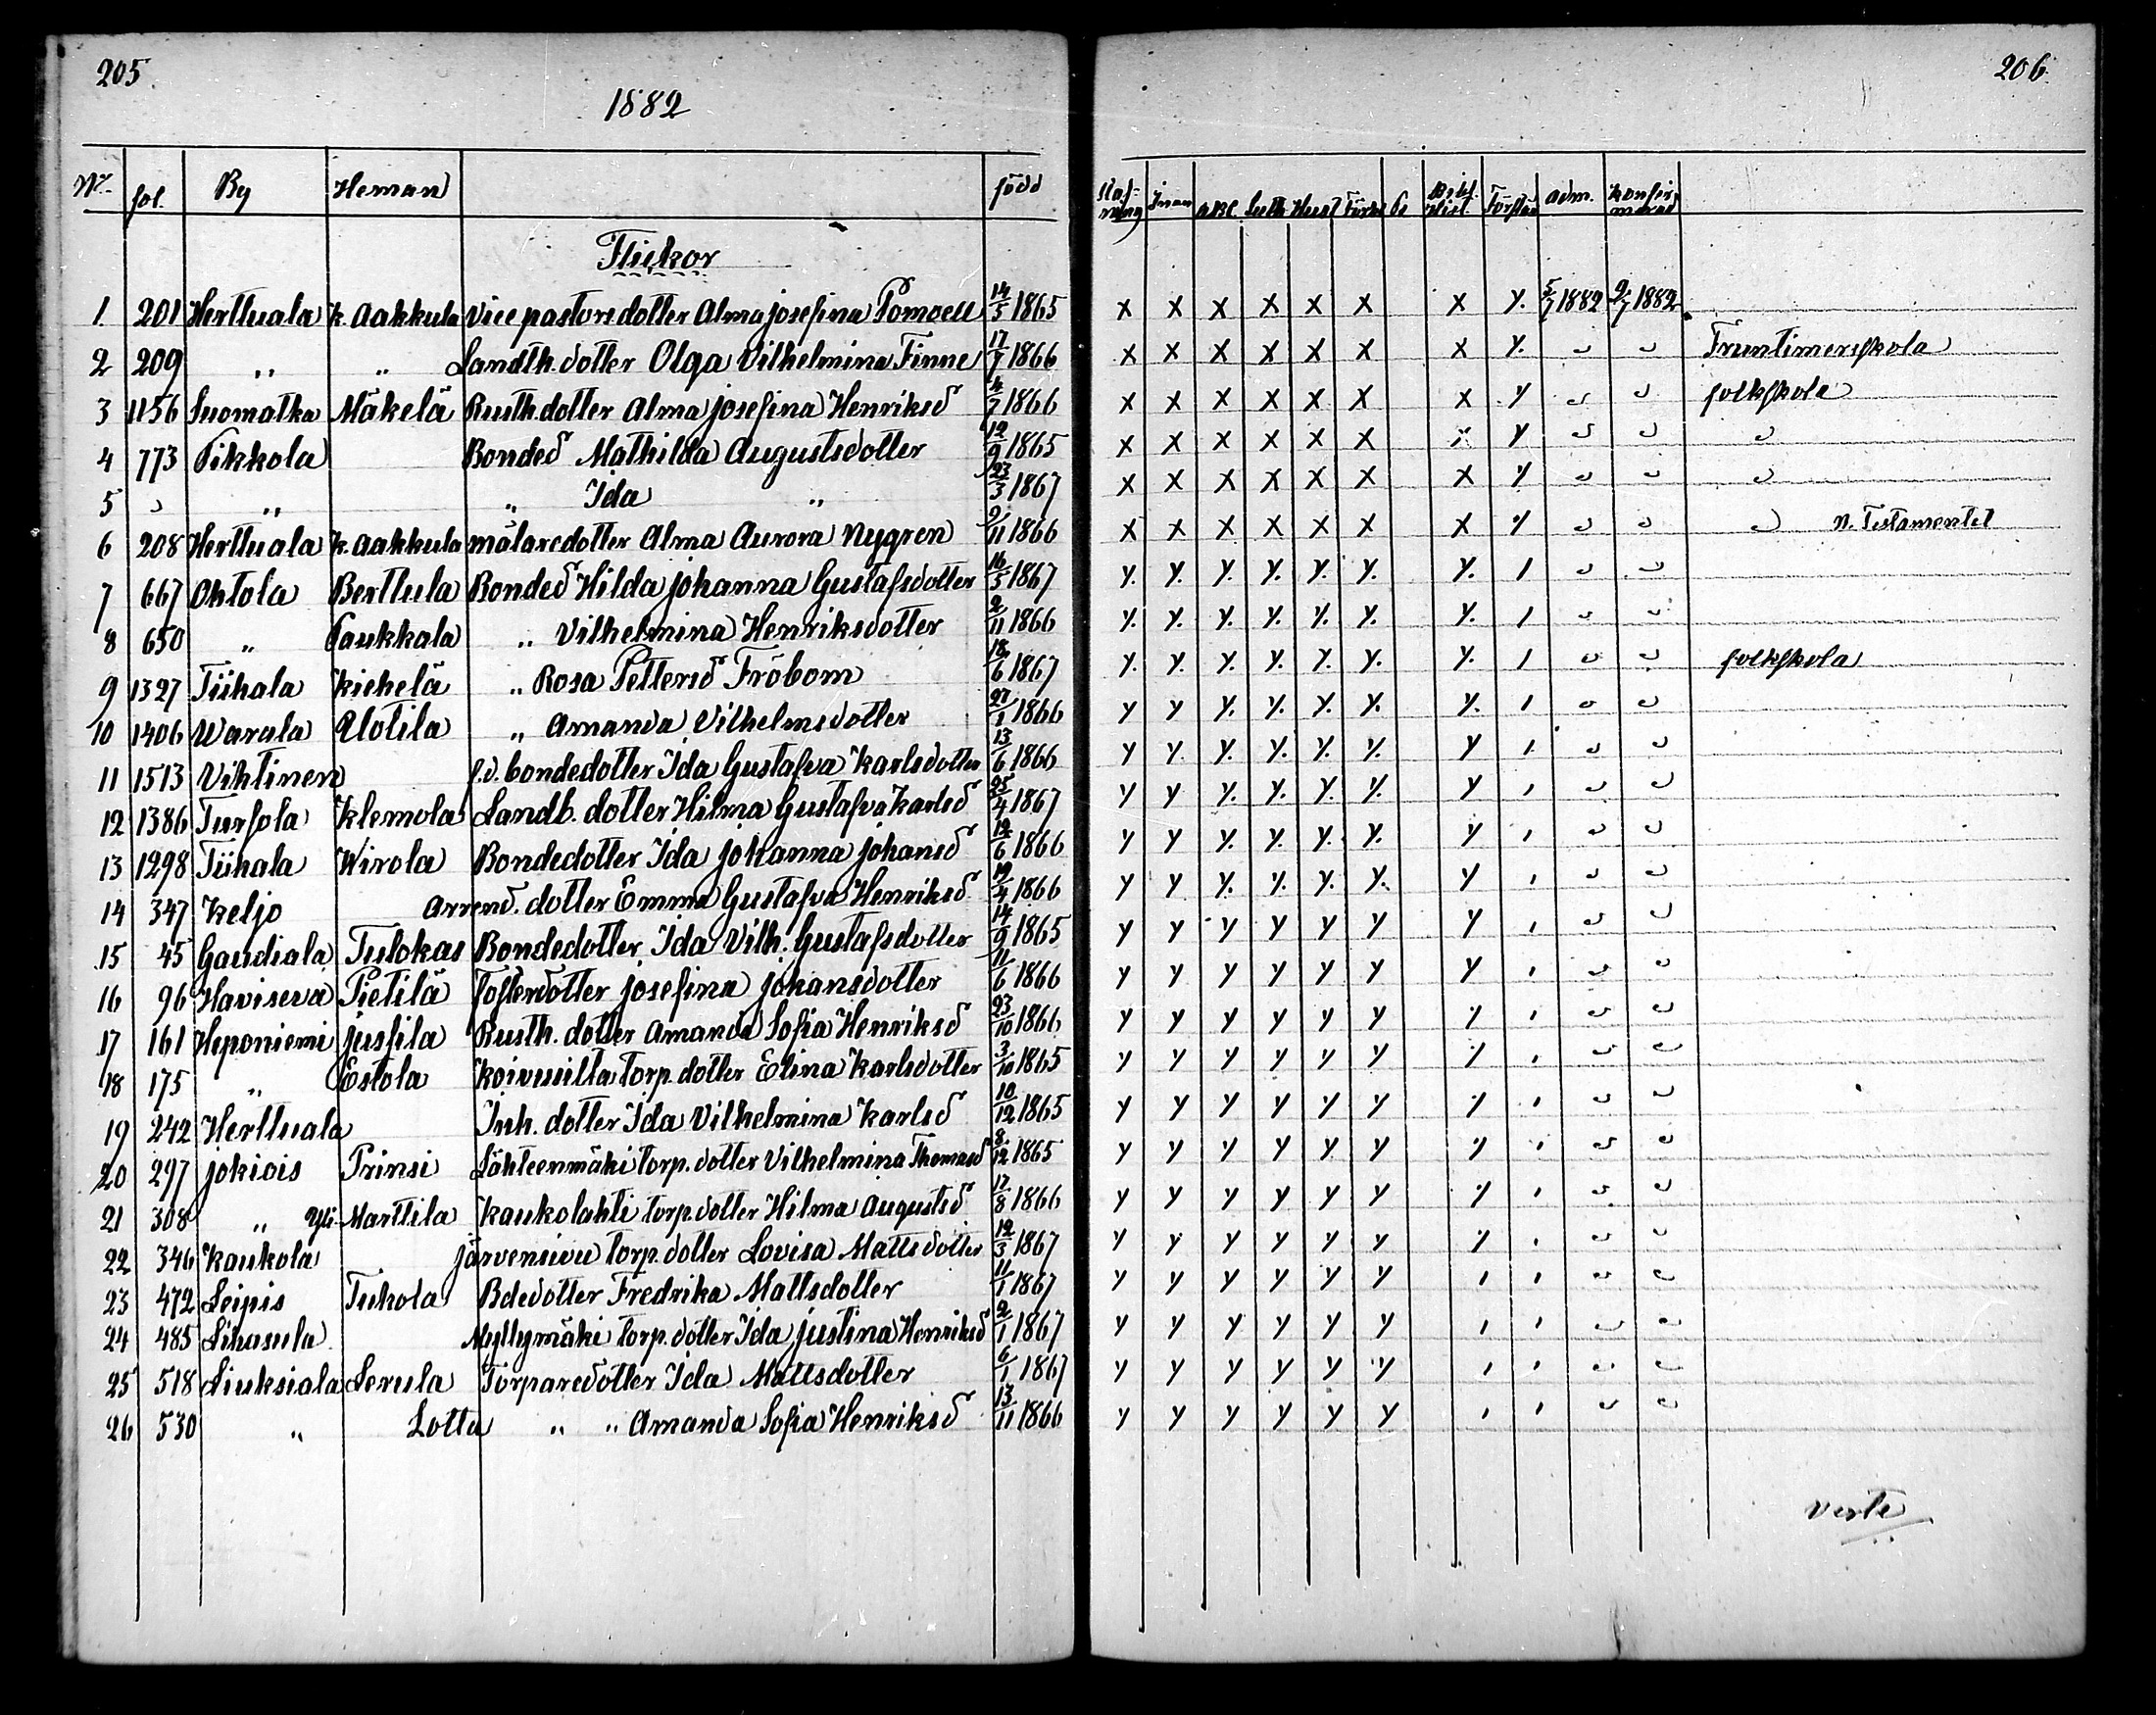 205
1882
No. fol. By Heman född
Flickor
1. 201 Herttuala K. Aakkula Vice pastors dotter Alma Josefina Pomoell 14/5 1865
2 209 " " Landth. dotter Olga Vilhelmina Finne 17/7 1866
3 1156 Suomatka Mäkelä Rusth. dotter Alma Josefina Henriksd 4/7 1866
4 773 Pikkola Bonded Mathilda Augustsdotter 12/9 1865
5 " " " Ida " 23/3 1867
6 208 Herttuala K. Aakkula målaredotter Alma Aurora Nygren 9/11 1866
7 667 Ohtola Berttula Bonded Hilda Johanna Gustafsdotter 16/5 1867
8 650 " Paukkala " Vilhelmina Henriksdotter 2/11 1866
9 1327 Tiihala Kiehelä " Rosa Pettersd Fröbom 18/6 1867
10 1406 Warala Uotila " Amanda Vilhelmsdotter 27/1 1866
11 1513 Vihtinen f.d. bondedotter Ida Gustafva Karlsdotter 13/6 1866
12 1386 Tursola Klemola Landb. dotter Hilma Gustafva Karlsd 25/4 1867
13 1298 Tiihala Wirola Bondedotter Ida Johanna Johansd 12/6 1866
14 347 Keljo Arrend. dotter Emma Gustafva Henriksd 19/4 1866
15 45 Gaudiala Tulokas Bondedotter Ida Vilh. Gustafsdotter 14/9 1865
16 96 Haviseva Pietilä Fosterdotter Josefina Johansdotter 11/6 1866
17 161 Heponiemi Jussila Rusth. dotter Amanda Sofia Henriksd 23/10 1866
18 175 " Estola Koivusilta torp. dotter Elina Karlsdotter 3/10 1865
19 242 Herttuala Inh. dotter Ida Vilhelmina Karlsd 10/12 1865
20 297 Jokiois Prinsi Lähteenmäki torp. dotter Vilhelmina Thomasd 8/12 1865
21 308 " Yli-Marttila Kaukolahti torp. dotter Hilma Augustsd 17/8 1866
22 346 Kaukola Järvensivu torp. dotter Lovisa Mattsdotter 12/3 1867
23 472 Leipis Tukola Bdedotter Fredrika Mattsdotter 11/1 1867
24 485 Lihasula Myllymäki torp. dotter Ida Justina Henriksd 2/1 1867
25 518 Liuksiala Lerula Torparedotter Ida Mattsdotter 6/1 1867
26 530 " Lotta " " Amanda Sofia Henriksd 13/11 1866
206
Innan ABC Luth Hust Bibl. Hist. Förstån adm. Konfirmerad
x x x x x x x y. 5/7 1882 9/7 1882
x x x x x x x y. " " Fruntimerskola
x x x x x x x y " " folkskola
x x x x x x x y " " "
x x x x x x x y " " "
x x x x x x x y " " " N. Testamentet
y. y. y. y. y. y. y. 1 " "
y. y. y. y. y. y. y. 1 " "
y. y. y. y. y. y. y. 1 " " folkskola
y y y. y. y. y. y. 1 " "
y y. y. y. y. y. y 1 " "
y y y. y. y. y. y 1 " "
y y y. y. y. y. y 1 " "
y y y. y. y. y. y 1 " "
y y y y y y y 1 " "
y y y y y y y 1 " "
y y y y y y y 1 " "
y y y y y y y 1 " "
y y y y y y y 1 " "
y y y y y y y 1 " "
y y y y y y y 1 " "
y y y y y y y 1 " "
y y y y y y 1 1 " "
y y y y y y 1 1 " "
y y y y y y 1 1 " "
y y y y y y 1 1 " "
verte